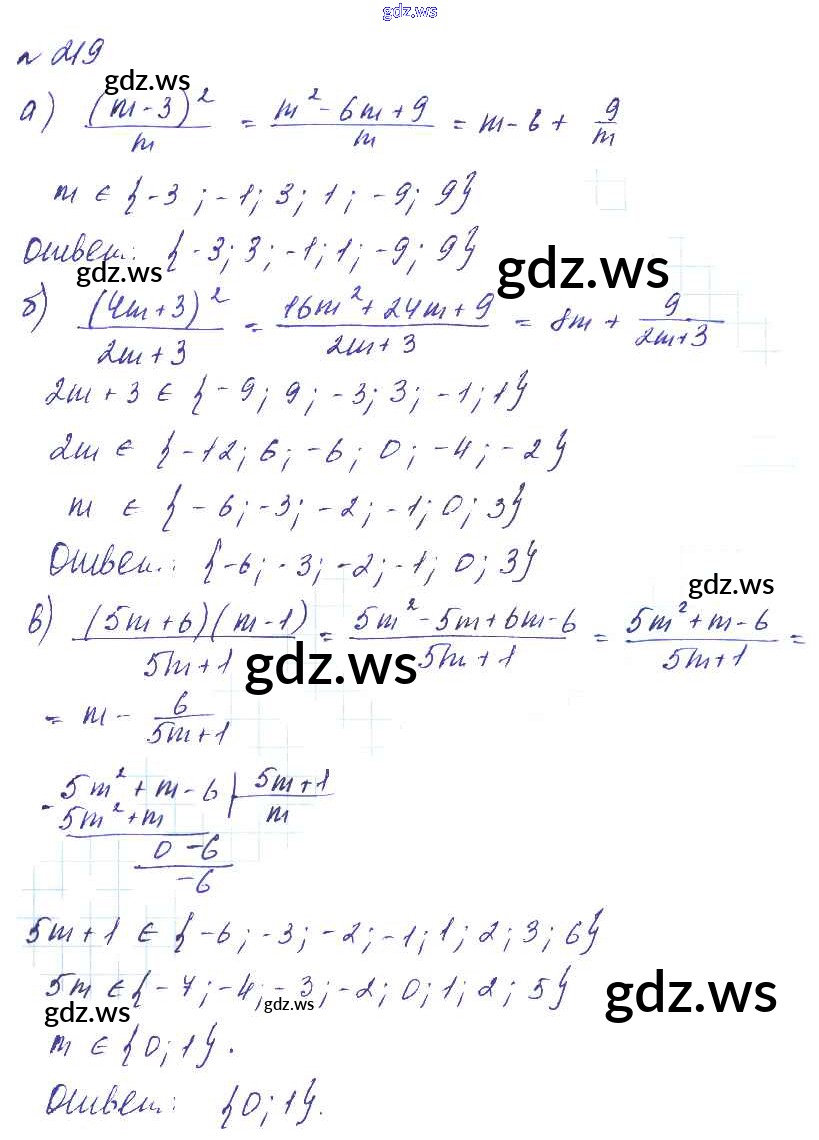 gdz.ws
№ 219
gdz.ws
а) (m-3)²/m = (m²-6m+9)/m = m-6+ 9/m
m ∈ {-3; -1; 3; 1; -9; 9}
Ответ: {-3; 3; -1; 1; -9; 9}
gdz.ws
gdz.ws
б) (4m+3)²/(2m+3) = (16m²+24m+9)/(2m+3) = 8m + 9/(2m+3)
2m+3 ∈ {-9; 9; -3; 3; -1; 1}
2m ∈ {-12; 6; -6; 0; -4; -2}
m ∈ {-6; -3; -2; -1; 0; 3}
Ответ: {-6; -3; -2; -1; 0; 3}
gdz.ws
в) (5m+6)(m-1)/(5m+1) = (5m²-5m+6m-6)/(5m+1) = (5m²+m-6)/(5m+1) =
gdz.ws
= m - 6/(5m+1)
- 5m²+m-6 | 5m+1
5m²+m m
0-6
-6
5m+1 ∈ {-6; -3; -2; -1; 1; 2; 3; 6}
5m ∈ {-7; -4; -3; -2; 0; 1; 2; 5}
gdz.ws gdz.ws gdz.ws
m ∈ {0; 1}.
Ответ: {0; 1}.